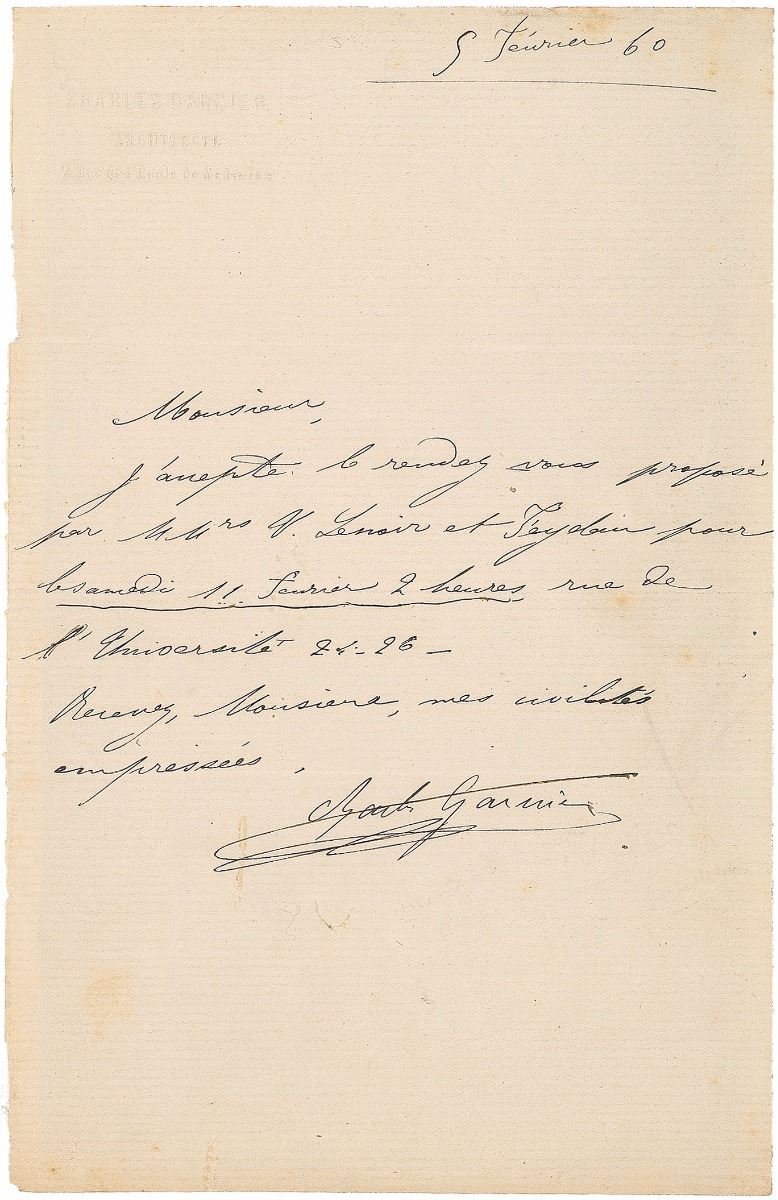 5 février 60
CHARLES GARNIER
ARCHITECTE
Monsieur,
J'accepte le rendez vous proposé
par MMrs V. Lenoir et Feydau pour
le samedi 11 février 2 heures, rue de
l'Université 24-26 –
Recevez, Monsieur, mes civilités
empressées,
Charles Garnier